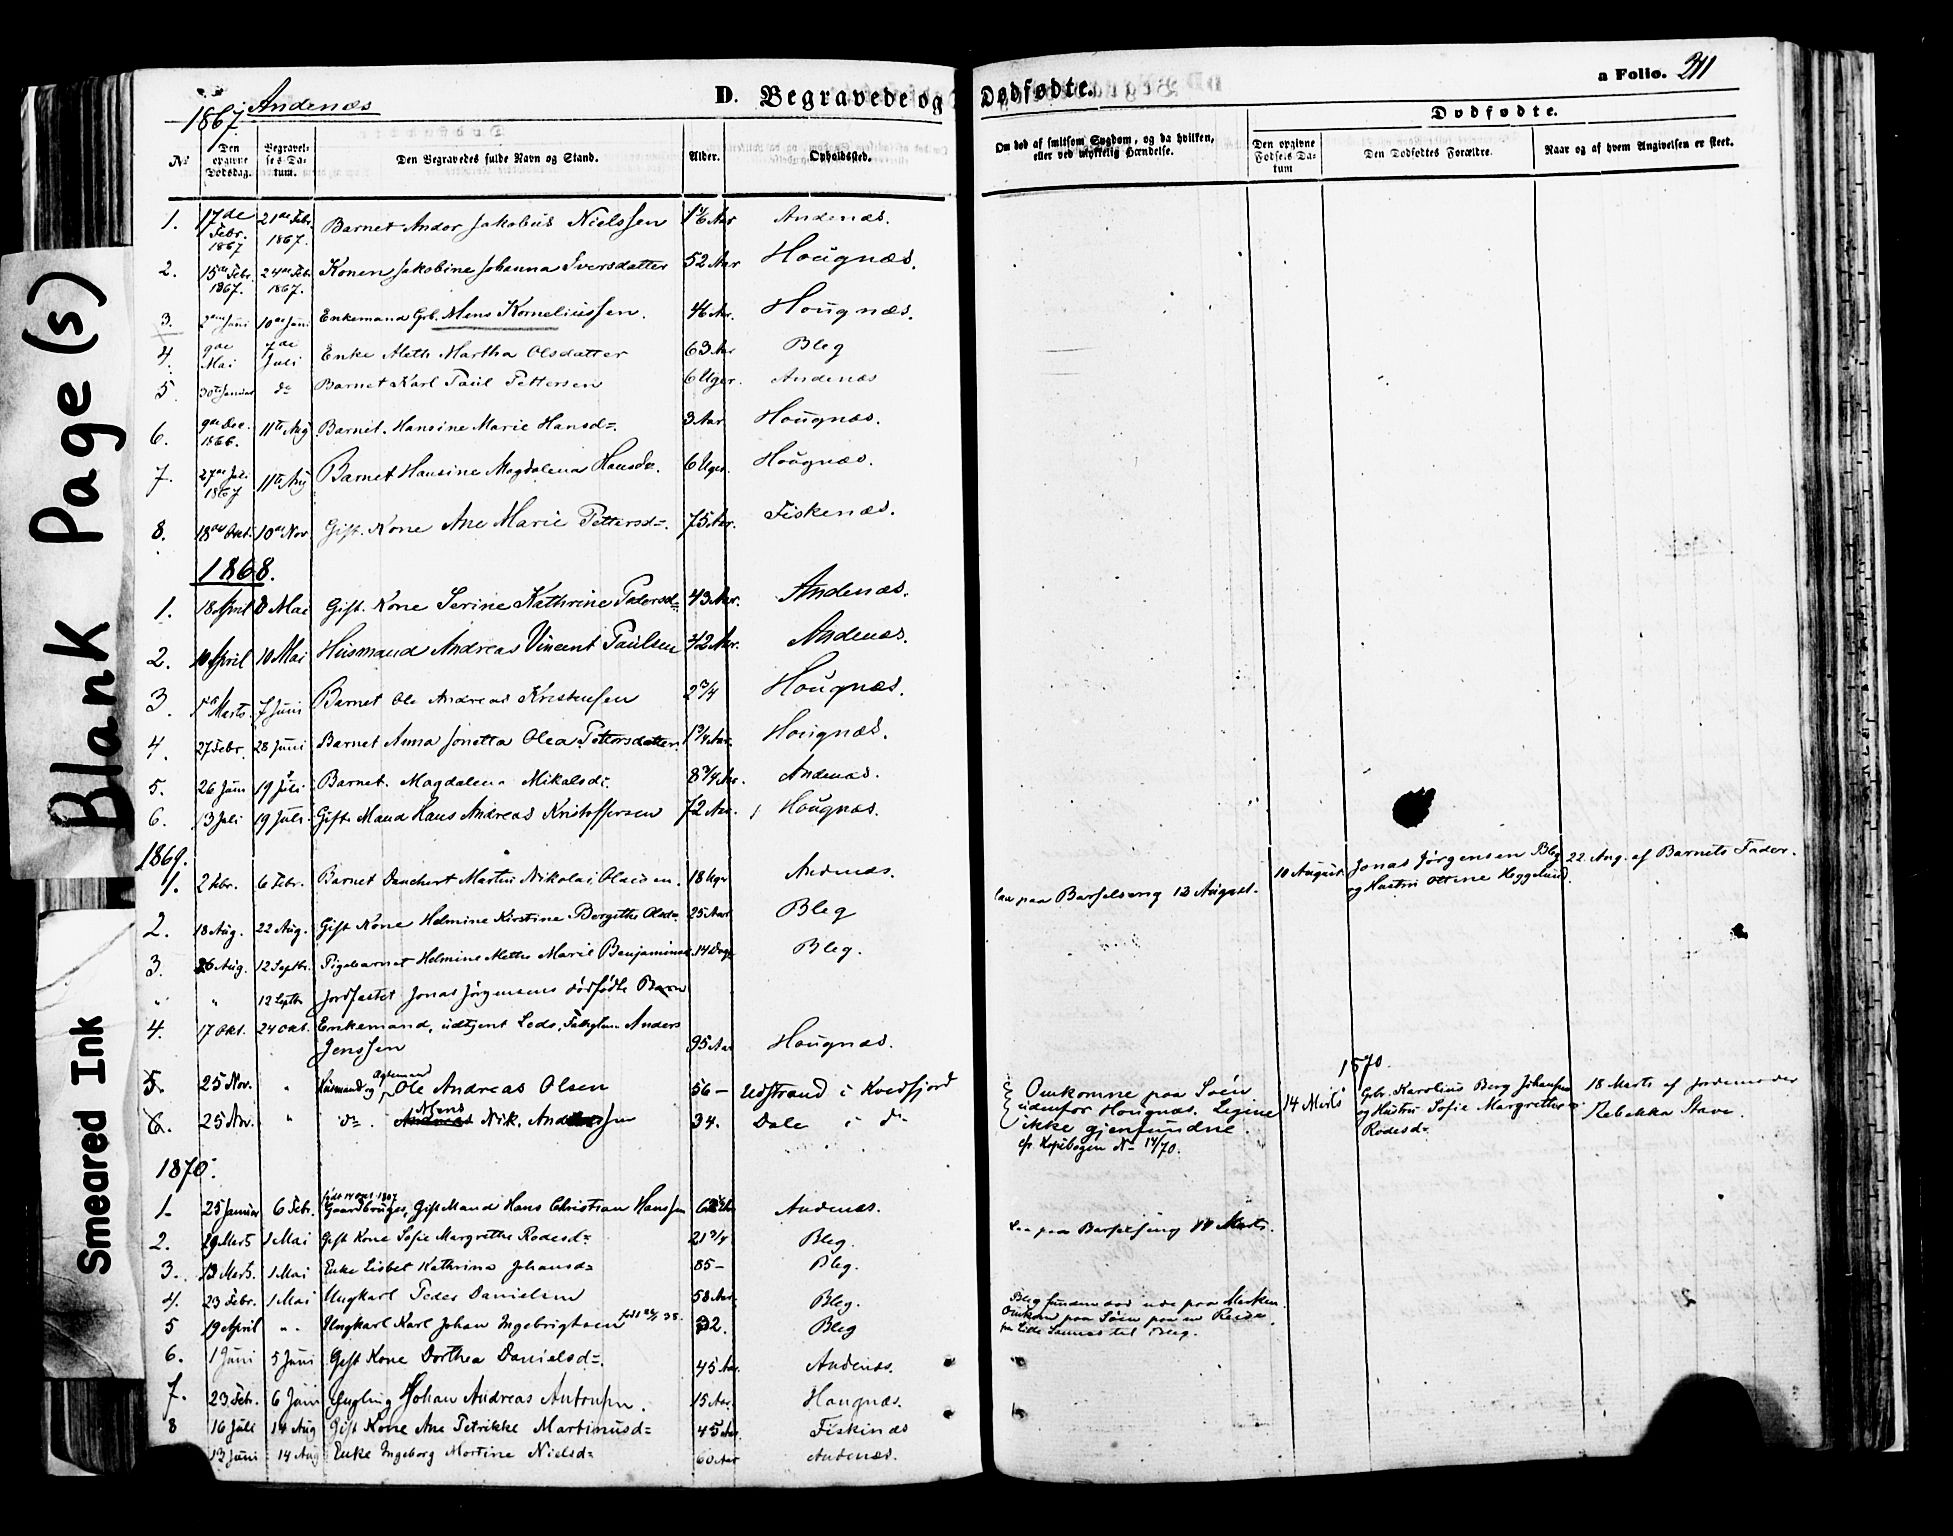 Blank Page(s)
Smeared Ink
1867 Andenæs
D. Begravede og Dødfødte.
a Folio. 211
No
Den opgivne Dødsdag.
Begravelses Datum.
Den Begravedes fulde Navn og Stand.
Alder.
Opholdssted.
Om død af smitsom Sygdom, og da hvilken, eller ved ulykkelig Hændelse.
Dødfødte.
Den opgivne Fødsels Datum
Den Dødfødtes Forældre.
Naar og af hvem Angivelsen er skeet.
1. 17de Febr. 1867 21de Febr. 1867. Barnet Andor Jakobus Nielssen 1 1/6 Aar Andenæs.
2. 15de Febr. 1867. 24de Febr. 1867. Konen Jakobine Johanna Iversdatter 52 Aar Hougnæs.
3. 2den Juni 10de Juni Enkemand Gb. Mons Korneliussen. 46 Ar. Hougnæs.
4. 9de Mai 7de Juli Enke Aleth Martha Olsdatter 63 Aar Bleg
5. 30te Januar do Barnet Karl Paul Pettersen 6 Uger. Andenæs
6. 9de Dec. 1866. 11te Aug Barnet. Hansine Marie Hansd=. 3 Aar. Hougnæs.
7. 27de Juli 1867 11te Aug Barnet Hansine Magdalena Hansd=. 6 Uger. Hougnæs.
8. 18de Okt. 10de Nov. Gift. Kone Ane Marie Pettersd=. 75 Aar. Fiskenæs.
1868.
1. 18 April 8 Mai Gift. Kone Serine Kathrine Pedersd= 43 Aar. Andenæs.
2. 10 April 10 Mai Husmand Andreas Vincent Paulsen 42 Aar. Andenæs.
3. 1ste Marts. 7 Juni Barnet Ole Andreas Kristensen 2 3/4 Hougnæs.
4. 27 Febr. 28 Juni Barnet Anna Jonetta Olea Pettersdatter. 1 3/4 Aar. Hougnæs.
5. 26 Juni 19 Juli Barnet. Magdalena Mikalsd=. 8 3/4 Ar. Andenæs.
6. 13 Juli 19 Juli. Gift Mand Hans Andreas Kristoffersen 72 Aar. Hougnæs.
1869.
1. 2 Febr. 6 Febr. Barnet Danchert Martin Nikolai Olausen. 18 Uger Andenæs.
10 August. Jonas Jørgensen Bleg og Hustru Oltine Heggelund. 22 Aug. af Barnets Fader.
2. 18 Aug. 22 Aug. Gift Kone Helmine Kirstine Bergithe Olsd= 25 Aar. Bleg
laa paa Barselseng 13 August.
3. 26 Aug. 12 Septbr. Pigebarnet Helmine Mette Marie Benjaminsd 14 Dage Bleg.
" " 12 Septbr Jordfæstet Jonas Jørgensens dødfødte Barn
4. 17 Okt. 24 Okt. Enkemand, udtjent Leds, Anders
Jenssen 95 Aar Hougnæs.
5. 25 Nov. " Husmand og Ole Andreas Olsen 56 – Udstrand i Kvedfjord
6. 25 Nov. " do. Mons Nik. Anderssen 34. Dale i do
Omkomne paa Søen
udenfor Hougnæs. Ligene
ikke gjenfundne.
cfr Kopibogen No 14/70.
1870.
14 Marts Gbr. Karolius Berg Johansen og Hustru Sofie Margrethe Rodesd= 18 Marts af Jordemoder Rebekka Stave.
1870.
født 14 Okt. 1807
1. 25 Januar 6 Febr. Gaardbruger, Gift Mand Hans Christian Hanssen Andenæs.
2. 29 Marts 1 Mai Gift Kone Sofie Margrethe Rodesd= 21 3/4 Bleg.
paa Barselseng Marts.
3. 13 Marts. 1 Mai Enke Lisbet Kathrina Johansd= 85 – Bleg.
4. 23 Febr. 1 Mai Ungkarl Peder Danielsen 58 Aar. Bleg.
5 19 April ". Ungkarl Karl Johan Ingebrigtsen 32. Bleg
funden død ude paa Marken.
Omkom paa Søen paa en Reise
til Bleg.
6. 1 Juni 5 Juni Gift Kone Dorthea Danielsd=. 45 Aar. Andenæs.
7. 23 Febr. 6 Juni Yngling Johan Andreas Antonsen. 15 Aar. Hougnæs.
8 16 Juli 14 Aug Gift Kone Ane Petrikke Martinusd= 45 Aar. Fiskinæs
13 Juni 14 Aug Enke Ingeborg Martine Nielsd= 60 Aar Andenæs.